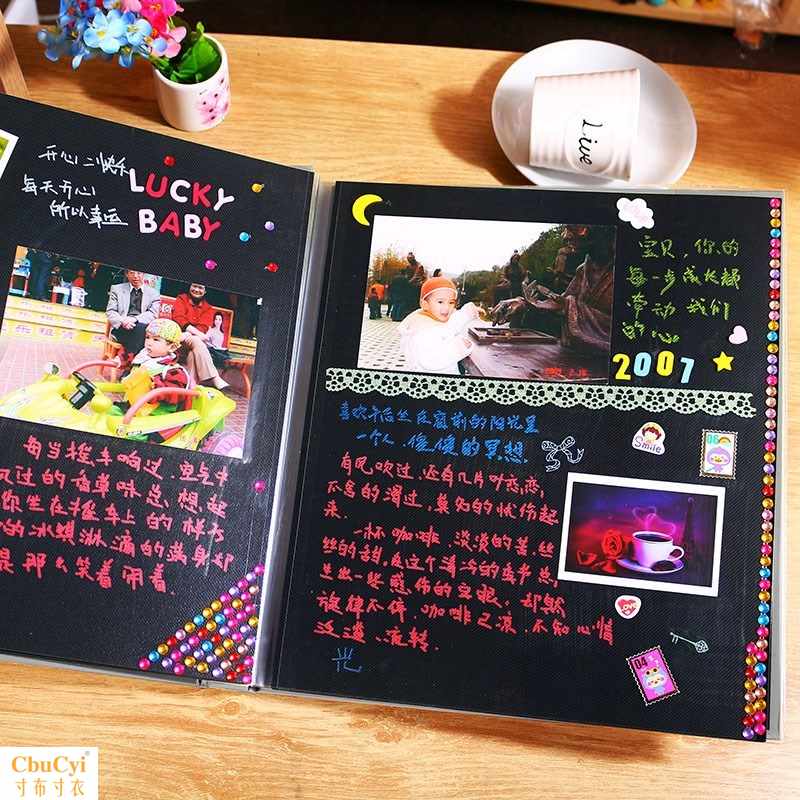 开心二快乐
每天开心
所以幸运
LUCKY
BABY
每当摇车响过,空气中
沉过的香草味总想起
你坐在摇车上的样子
的冰淇淋,滴的满身却
是那么笑着闹着.
宝贝,你的
每一步成长都
牵动我们
的心。
2007
喜欢午后坐在窗前的阳光里
一个人,傻傻的冥想
有风吹过,还有几片叶恋恋
不舍的滑过,莫名的忧伤起
来.
一杯咖啡,淡淡的苦,丝
丝的甜,在这个清冷的季节总
生出一些感伤的空眼,却
旋律不停,咖啡已凉,不知心情
流转.
Smile
06
LOVE
04
Live
CbuCyi®
寸布寸衣